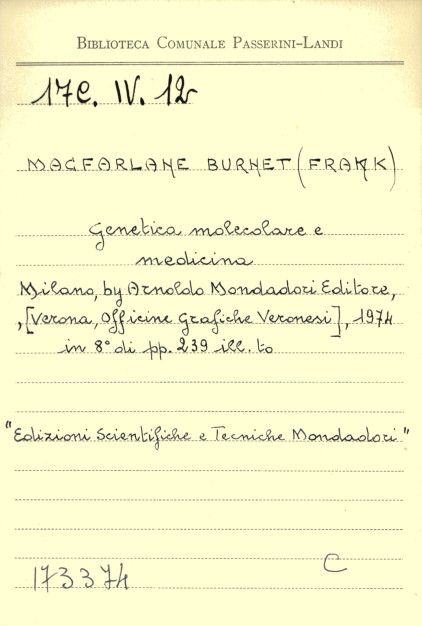 BIBLIOTECA COMUNALE PASSERINI-LANDI
17C. IV. 12
MACFARLANE BURNET (FRANK)
Genetica molecolare e
medicina
Milano, by Arnoldo Mondadori Editore,
, [Verona, Officine Grafiche Veronesi], 1974
in 8° di pp. 239 ill. to
"Edizioni Scientifiche e Tecniche Mondadori"
C
173374